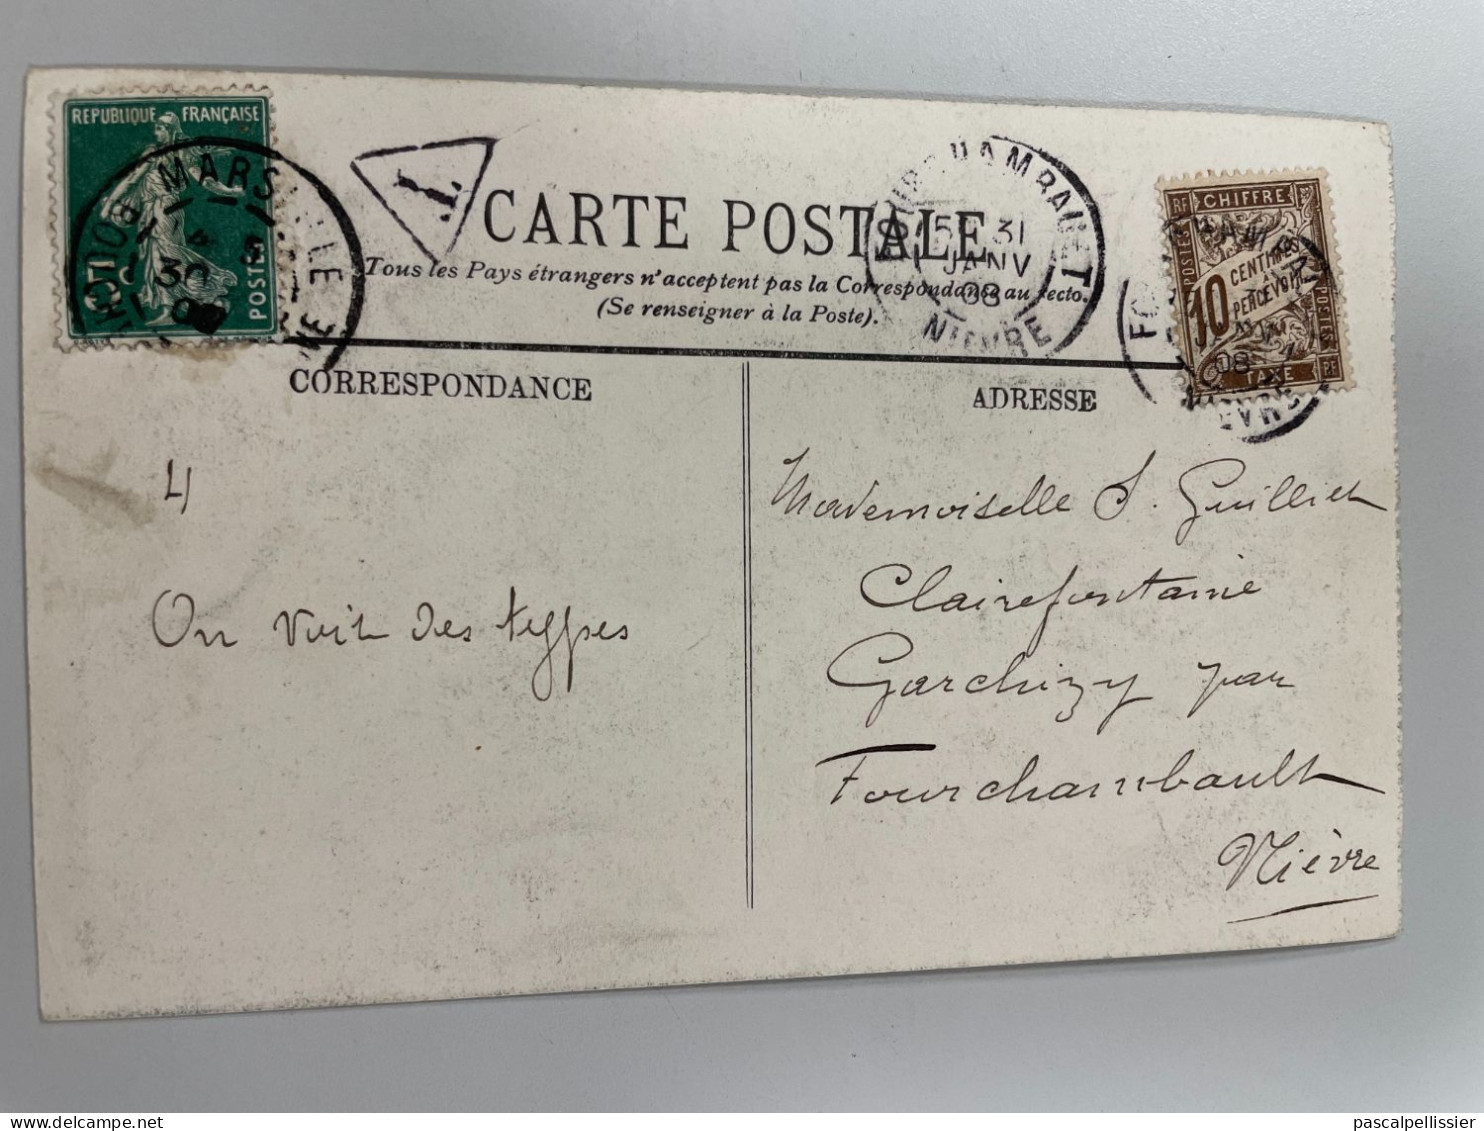 REPUBLIQUE FRANÇAISE
5c
POSTES
MARSEILLE
BOUCHES
30
T
CARTE POSTALE
Tous les Pays étrangers n'acceptent pas la Correspondance au recto.
(Se renseigner à la Poste).
FOURCHAMBAULT
31
JANV
08
NIEVRE
RF CHIFFRE
POSTES
10 CENTIMES
A PERCEVOIR
TAXE RF
08
NIEVRE
CORRESPONDANCE
ADRESSE
4
On voit des types
Mademoiselle S. Guilliet
Clairefontaine
Garchizy par
Fourchambault
Nièvre
pascalpellissier